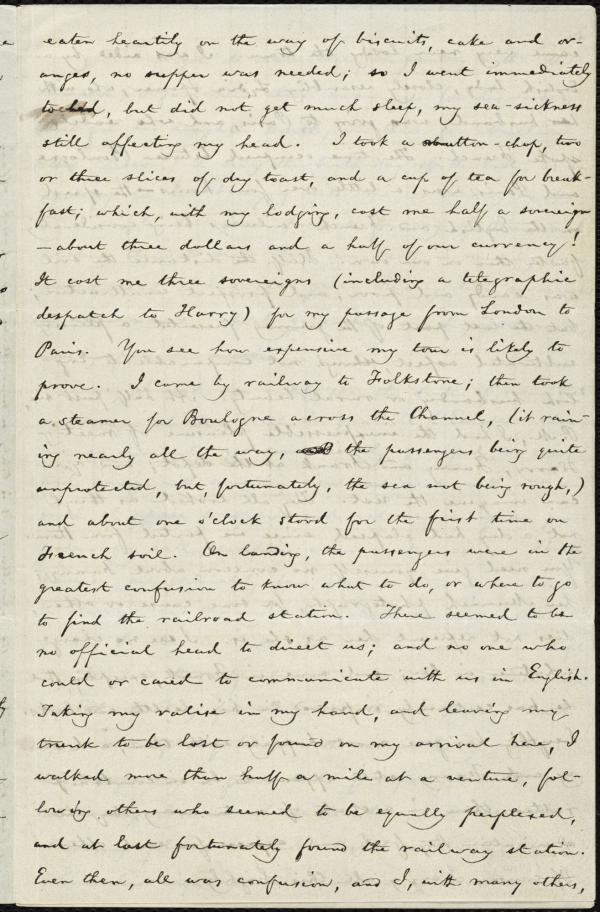 eaten heartily on the way of biscuits, cake and or-
anges, no supper was needed; so I went immediately
to bed, but did not get much sleep, my sea-sickness
still affecting my head. I took a mutton-chop, two
or three slices of dry toast, and a cup of tea for break-
fast; which, with my lodging, cost me half a sovereign
— about three dollars and a half of our currency!
It cost me three sovereigns (including a telegraphic
despatch to Harry) for my passage from London to
Paris. You see how expensive my tour is likely to
prove. I came by railway to Folkstone; then took
a steamer for Boulogne across the Channel, (it rain-
ing nearly all the way, the passengers being quite
unprotected, but, fortunately, the sea not being rough,)
and about one o'clock stood for the first time on
French soil. On landing, the passengers were in the
greatest confusion to know what to do, or where to go
to find the railroad station. There seemed to be
no official head to direct us; and no one who
could or cared to communicate with us in English.
Taking my valise in my hand, and leaving my
trunk to be lost or found on my arrival here, I
walked more than half a mile at a venture, fol-
lowing others who seemed to be equally perplexed,
and at last fortunately found the railway station.
Even then, all was confusion, and I, with many others,